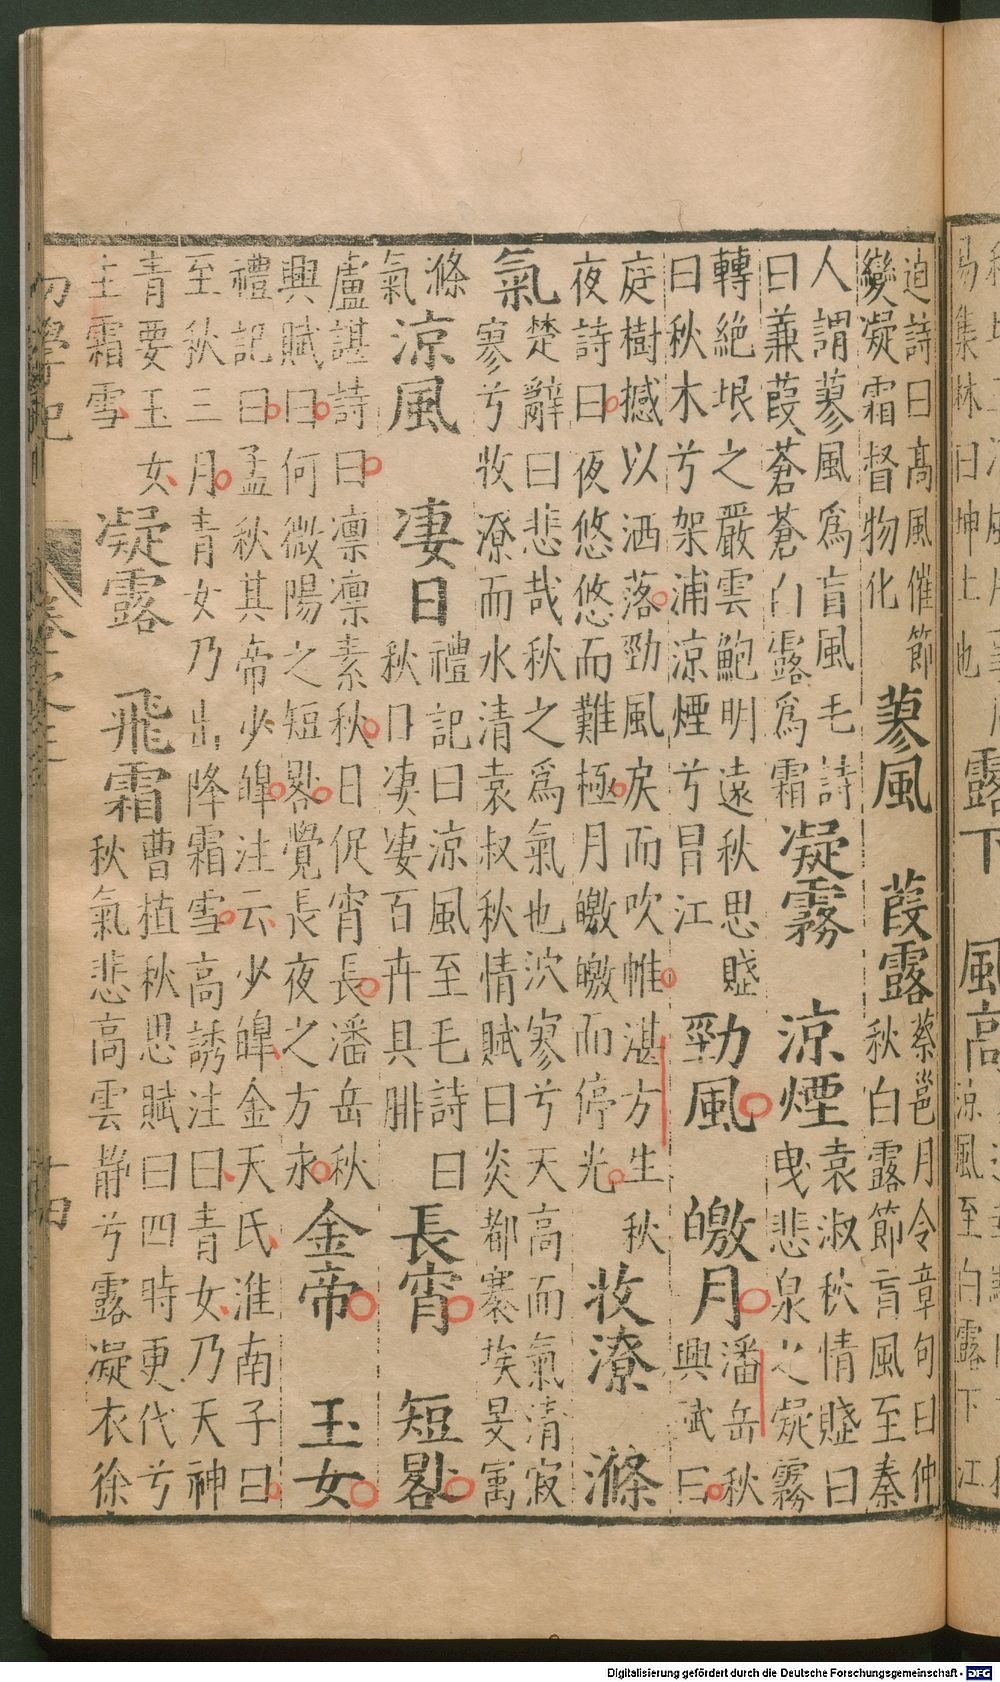 露下　風高涼風至白露下江
迫詩曰高風催節
變凝霜督物化
蓼風　葭露
蔡邕月令章句曰仲
秋白露節盲風至秦
人謂蓼風爲盲風毛詩
曰蒹葭蒼蒼白露爲霜
凝霧　涼煙
袁淑秋情賦曰
曳悲泉之凝霧
轉絕垠之嚴雲鮑明遠秋思賦
曰秋木兮架浦涼煙兮冒江
勁風　皦月
潘岳秋
興賦曰
庭樹撼以洒落勁風戾而吹帷湛方生秋
夜詩曰夜悠悠而難極月皦皦而停光
收潦　滌
氣
楚辭曰悲哉秋之爲氣也泬寥兮天高而氣清寂
寥兮收潦而水清袁叔秋情賦曰炎都寨埃旻寓
滌
氣
涼風　凄日
禮記曰涼風至毛詩曰
秋日凄凄百卉具腓
長宵　短晷
盧諶詩曰凛凛素秋日促宵長潘岳秋
興賦曰何微陽之短晷覺長夜之方永
金帝　玉女
禮記曰孟秋其帝少皞注云少皞金天氏淮南子曰
至秋三月青女乃出降霜雪高誘注曰青女乃天神
青要玉女
主霜雪
凝露　飛霜
曹植秋思賦曰四時更代兮
秋氣悲高雲静兮露凝衣徐
Digitalisierung gefördert durch die Deutsche Forschungsgemeinschaft - DFG